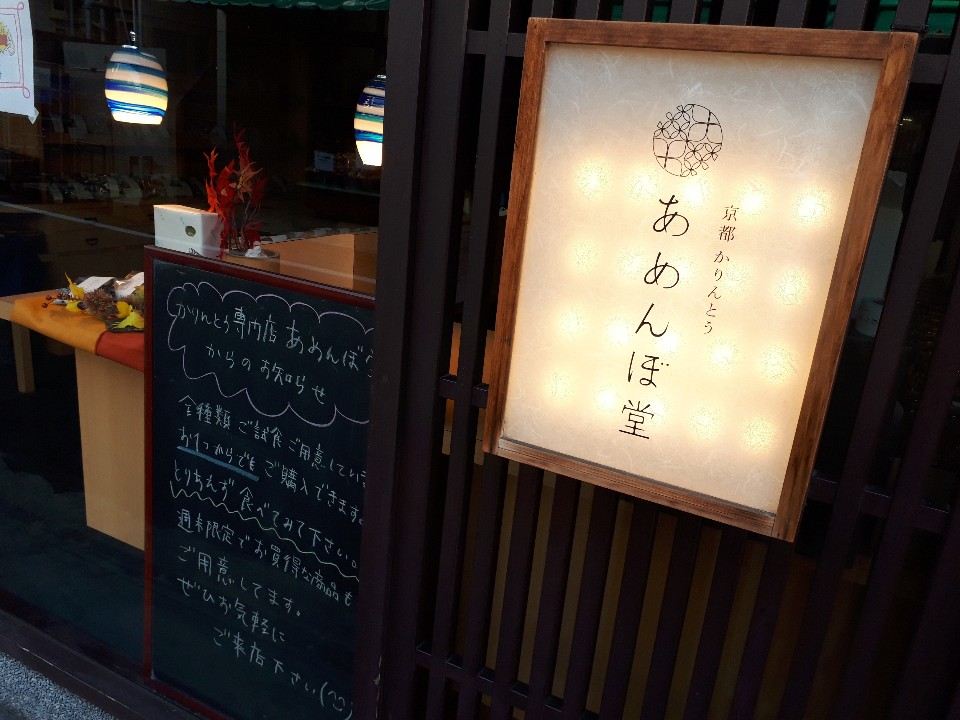 京都 かりんとう
あめんぼ堂
かりんとう専門店 あめんぼ
からのお知らせ
全種類 ご試食ご用意してい
お1つからでも ご購入できます。
とりあえず 食べてみて下さい。
週末限定でお買得な商品も
ご用意してます。
ぜひお気軽に
ご来店下さい